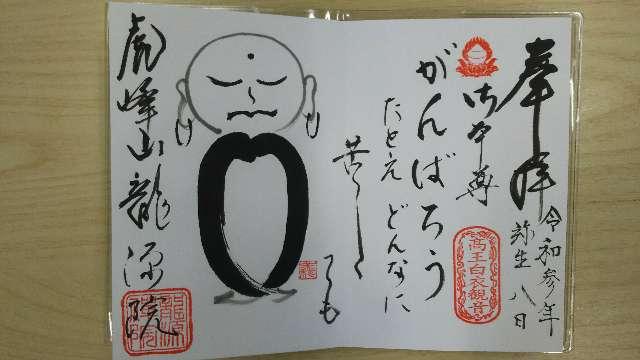 奉拝
令和参年
弥生 八日
御本尊
高王白衣観音
がんばろう
たとえ どんなに
苦しくても
虎峰山龍源院